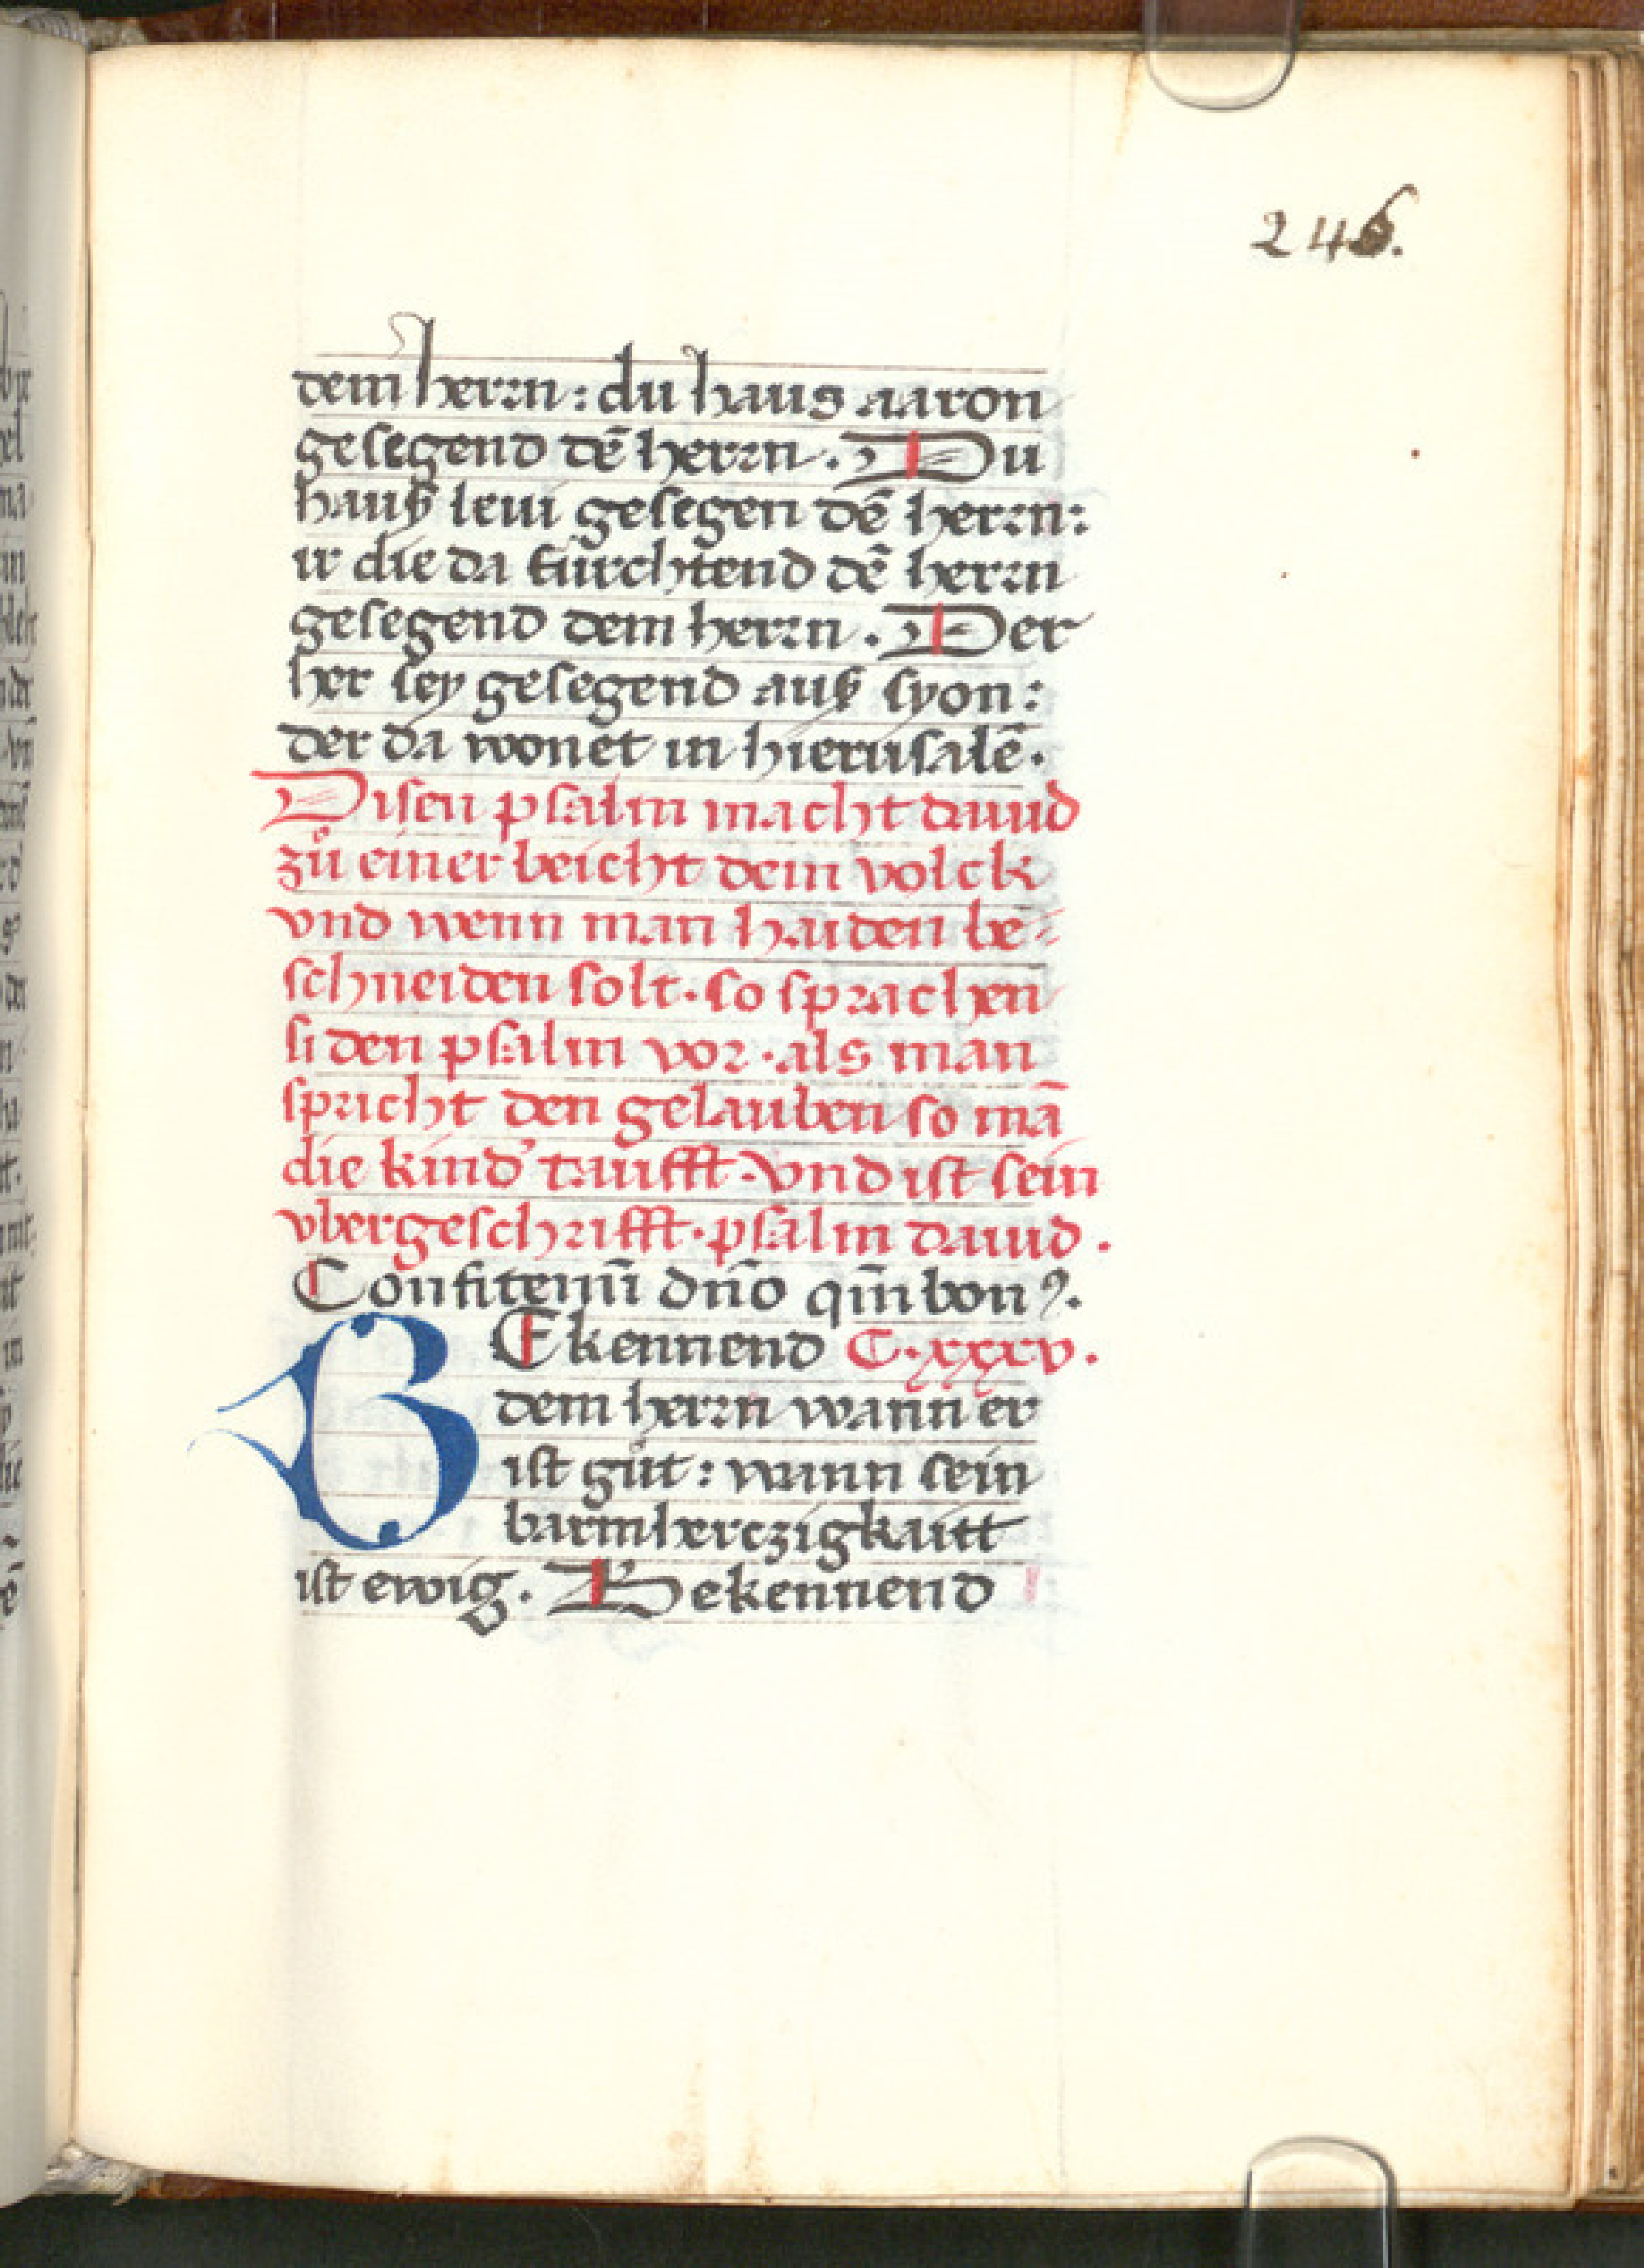 246.
dem herrn: du haus aaron
gesegend dē herrn. Du
hauß leui gesegen dē herrn:
ir die da fürchtend dē herrn
gesegend dem herrn. Der
her sey gesegend auß syon:
der da wonet in hierusalē.
Disen psalm macht dauid
zů einer beicht dem volck
vnd wenn man haiden be⸗
schneiden solt. so sprachen
si den psalm vor. als man
spricht den gelauben so mā
die kind' taufft. vnd ist sein
vbergeschrifft. psalm dauid.
Confitemī dn̄o qm̄ bonꝰ.
BEkennend C.xxxv.
dem herrn wann er
ist gůt: wann sein
barmherczigkaitt
ist ewig. Bekennend